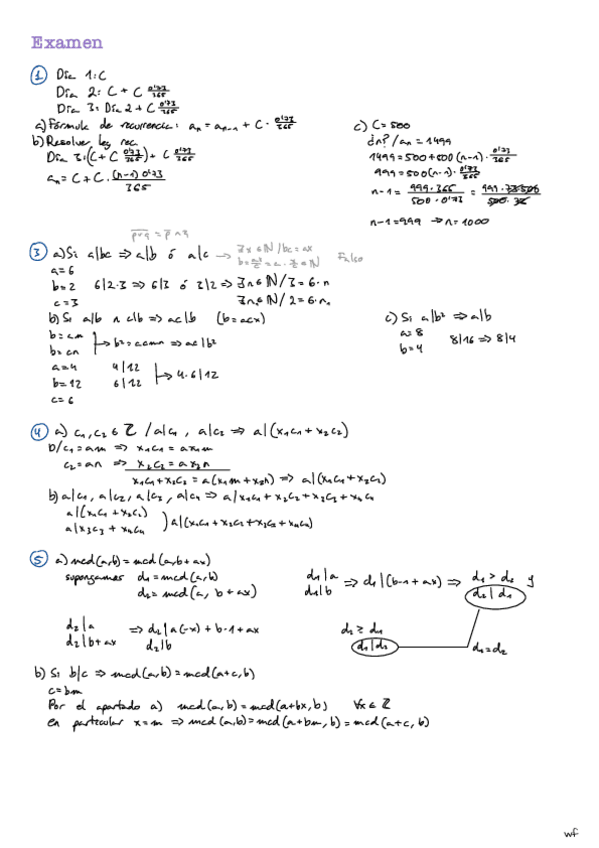 Examen
1 Día 1: C
Día 2: C + C 0'73/365
Día 3: Día 2 + C 0'73/365
a) Fórmula de recurrencia: aₙ = aₙ₋₁ + C · 0'73/365
b) Resolver ley rec.
Día 3: (C + C 0'73/365) + C 0'73/365
aₙ = C + C · (n-1) 0'73/365
c) C = 500
¿n? / aₙ = 1499
1499 = 500 + 500 (n-1) · 0'73/365
999 = 500 (n-1) · 0'73/365
n-1 = 999 · 365 / 500 · 0'73 =
n-1 = 999 → n = 1000
p∨q = p ∧ q
3 a) Si a|bc ⇒ a|b ó a|c → ∃x ∈ ℕ / bc = ax
Falso
a = 6
b = 2 6|2·3 ⇒ 6|3 ó 3|2 ⇒ ∃n ∈ ℕ / 3 = 6·n
c = 3 ∃n₁ ∈ ℕ / 2 = 6·n₁
b) Si a|b ∧ c|b ⇒ ac|b (b = acx)
b = am
b = cn → b² = acmn ⇒ ac|b²
a = 4 4|12
b = 12 6|12 → 4·6|12
c = 6
c) Si a|b² ⇒ a|b
a = 8
b = 4 8|16 ⇒ 8|4
4 a) c₁, c₂ ∈ ℤ / a|c₁, a|c₂ ⇒ a|(x₁c₁ + x₂c₂)
D/ c₁ = am ⇒ x₁c₁ = ax₁m
c₂ = an ⇒ x₂c₂ = ax₂n
x₁c₁ + x₂c₂ = a(x₁m + x₂n) ⇒ a|(x₁c₁ + x₂c₂)
b) a|c₁, a|c₂, a|c₃, a|c₄ ⇒ a|x₁c₁ + x₂c₂ + x₃c₃ + x₄c₄
a|(x₁c₁ + x₂c₂)
a|x₃c₃ + x₄c₄ ) a|(x₁c₁ + x₂c₂ + x₃c₃ + x₄c₄)
5 a) mcd(a,b) = mcd(a,b+ax)
supongamos d₁ = mcd(a,b)
d₂ = mcd(a, b+ax)
d₁|a
d₁|b ⇒ d₁|(b·1 + ax) ⇒ d₁ > d₂ y
d₂|d₁
d₂|a
d₂|b+ax ⇒ d₂|a(-x) + b·1 + ax
d₂|b
d₂ ≥ d₁
d₁|d₂
d₁ = d₂
b) Si b|c ⇒ mcd(a,b) = mcd(a+c,b)
c = bm
Por el apartado a) mcd(a,b) = mcd(a+bx,b) ∀x ∈ ℤ
en particular x = m ⇒ mcd(a,b) = mcd(a+bm, b) = mcd(a+c, b)
wf